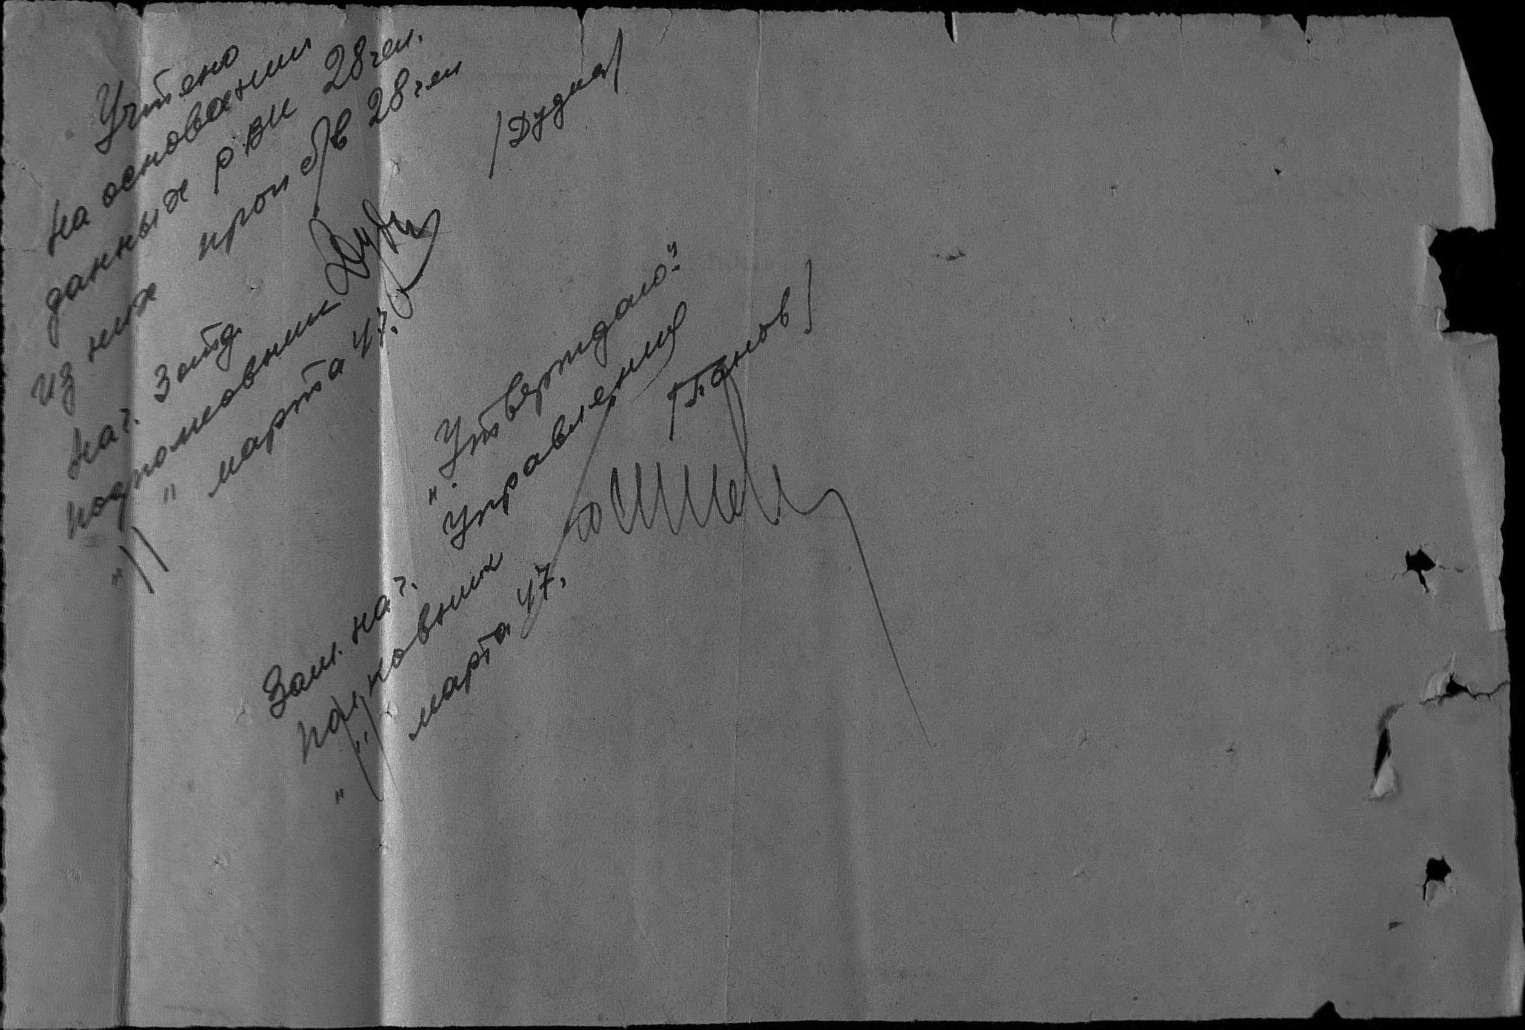 Учтено
на основании
данных РВК 28 чел.
из них проп б/в 28 чел
Нач. 3 отд.
подполковник /Дудка/
" " марта 47.
"Утверждаю:"
Зам. нач. Управления
полковник /Панов/
" " марта 47.